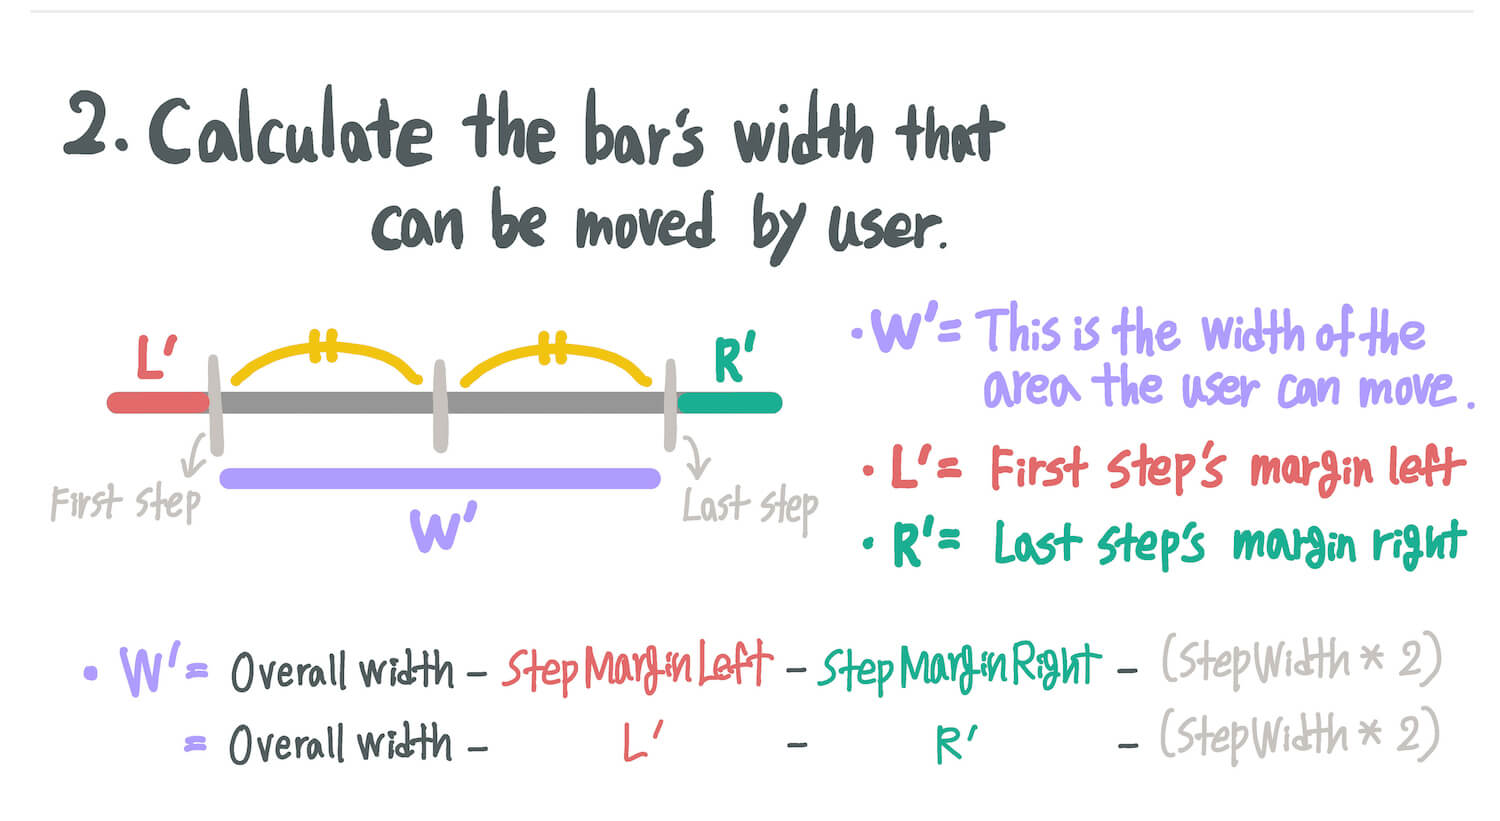 2. Calculate the bar's width that
can be moved by user.
L'
R'
First step
Last step
W'
• W' = This is the width of the
area the user can move.
• L' = First step's margin left
• R' = Last step's margin right
• W' = Overall width - StepMarginLeft - StepMarginRight - (StepWidth * 2)
= Overall width - L' - R' - (StepWidth * 2)